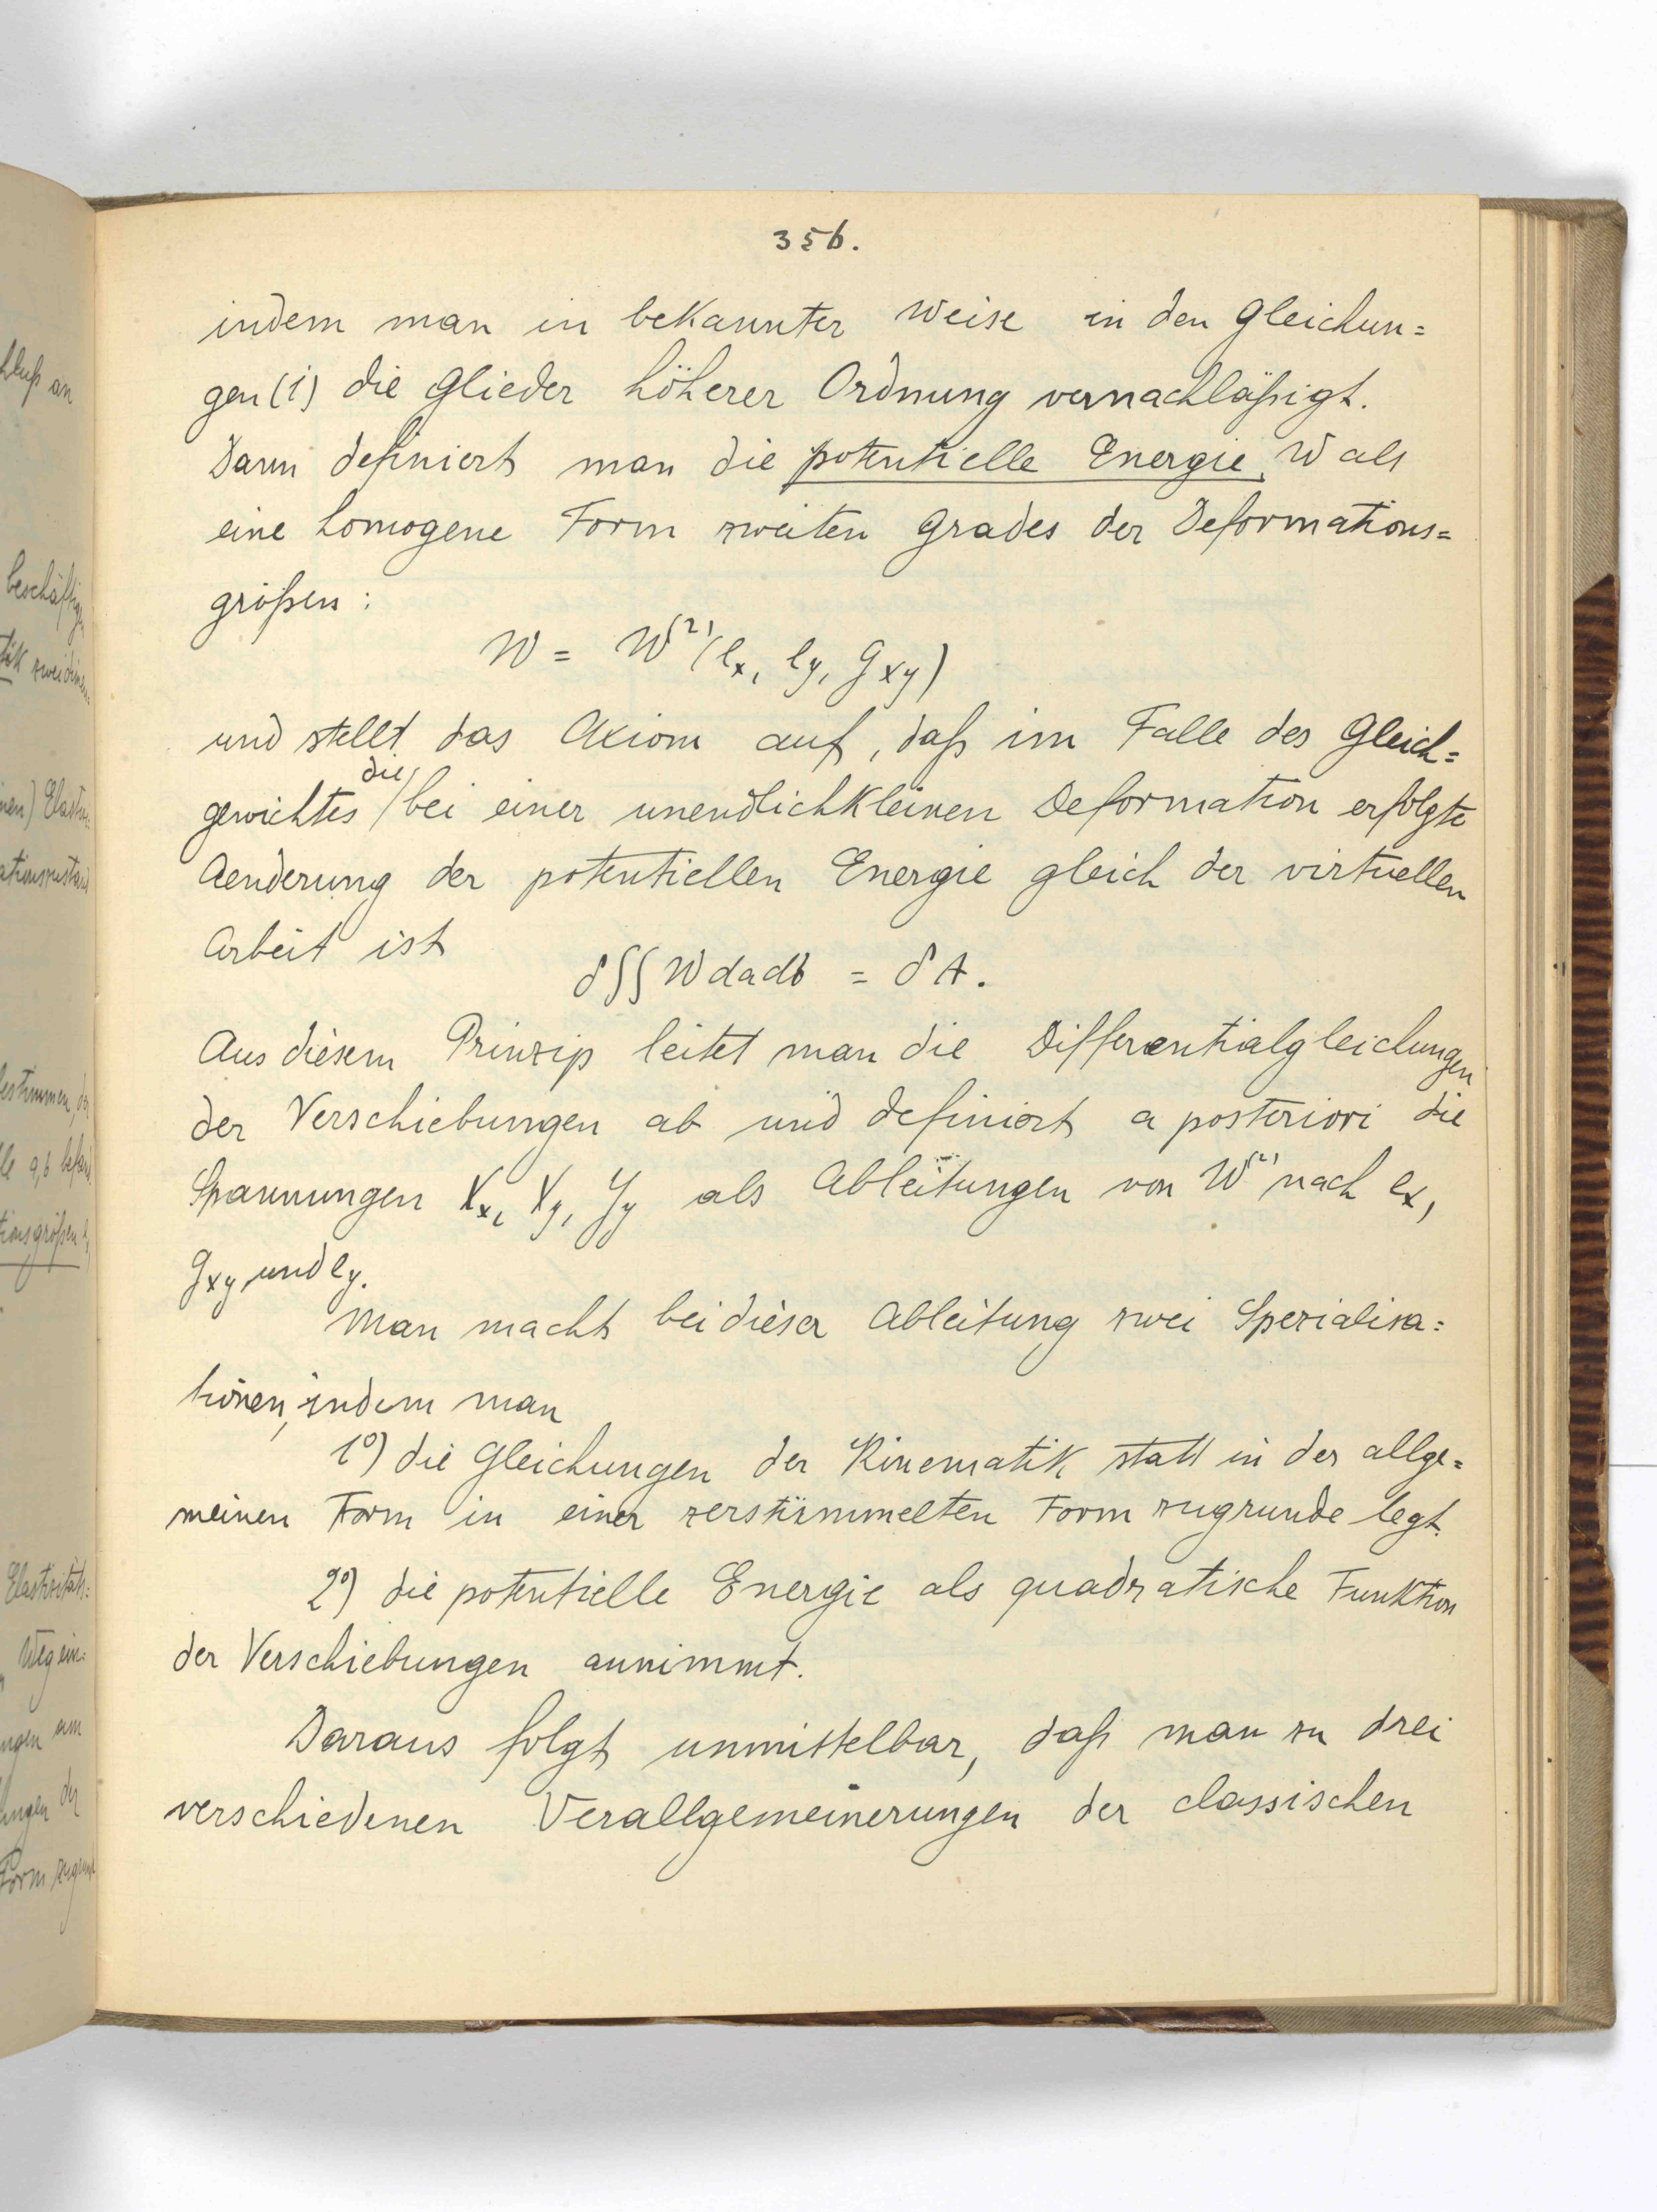 356.
indem man in bekannter Weise in den Gleichun=
gen (1) die Glieder höherer Ordnung vernachläßigt.
Dann definiert man die potentielle Energie W als
eine homogene Form zweiten Grades der Deformations=
größen:
W = W⁽²⁾(ex, ey, gxy)
und stellt das Axiom auf, daß im Falle des Gleich=
gewichtes die bei einer unendlichkleinen Deformation erfolgte
Aenderung der potentiellen Energie gleich der virtuellen
Arbeit ist
δ∫∫W da db = δA.
Aus diesem Prinzip leitet man die Differentialgleichungen
der Verschiebungen ab und definiert a posteriori die
Spannungen Xx, Xy, Yy als Ableitungen von W⁽²⁾ nach ex,
gxy und ey.
Man macht bei dieser Ableitung zwei Spezialisa=
tionen, indem man
1⁰) die Gleichungen der Kinematik statt in der allge=
meinen Form in einer zerstümmelten Form zugrunde legt.
2⁰) die potentielle Energie als quadratische Funktion
der Verschiebungen annimmt.
Daraus folgt unmittelbar, daß man zu drei
verschiedenen Verallgemeinerungen der classischen